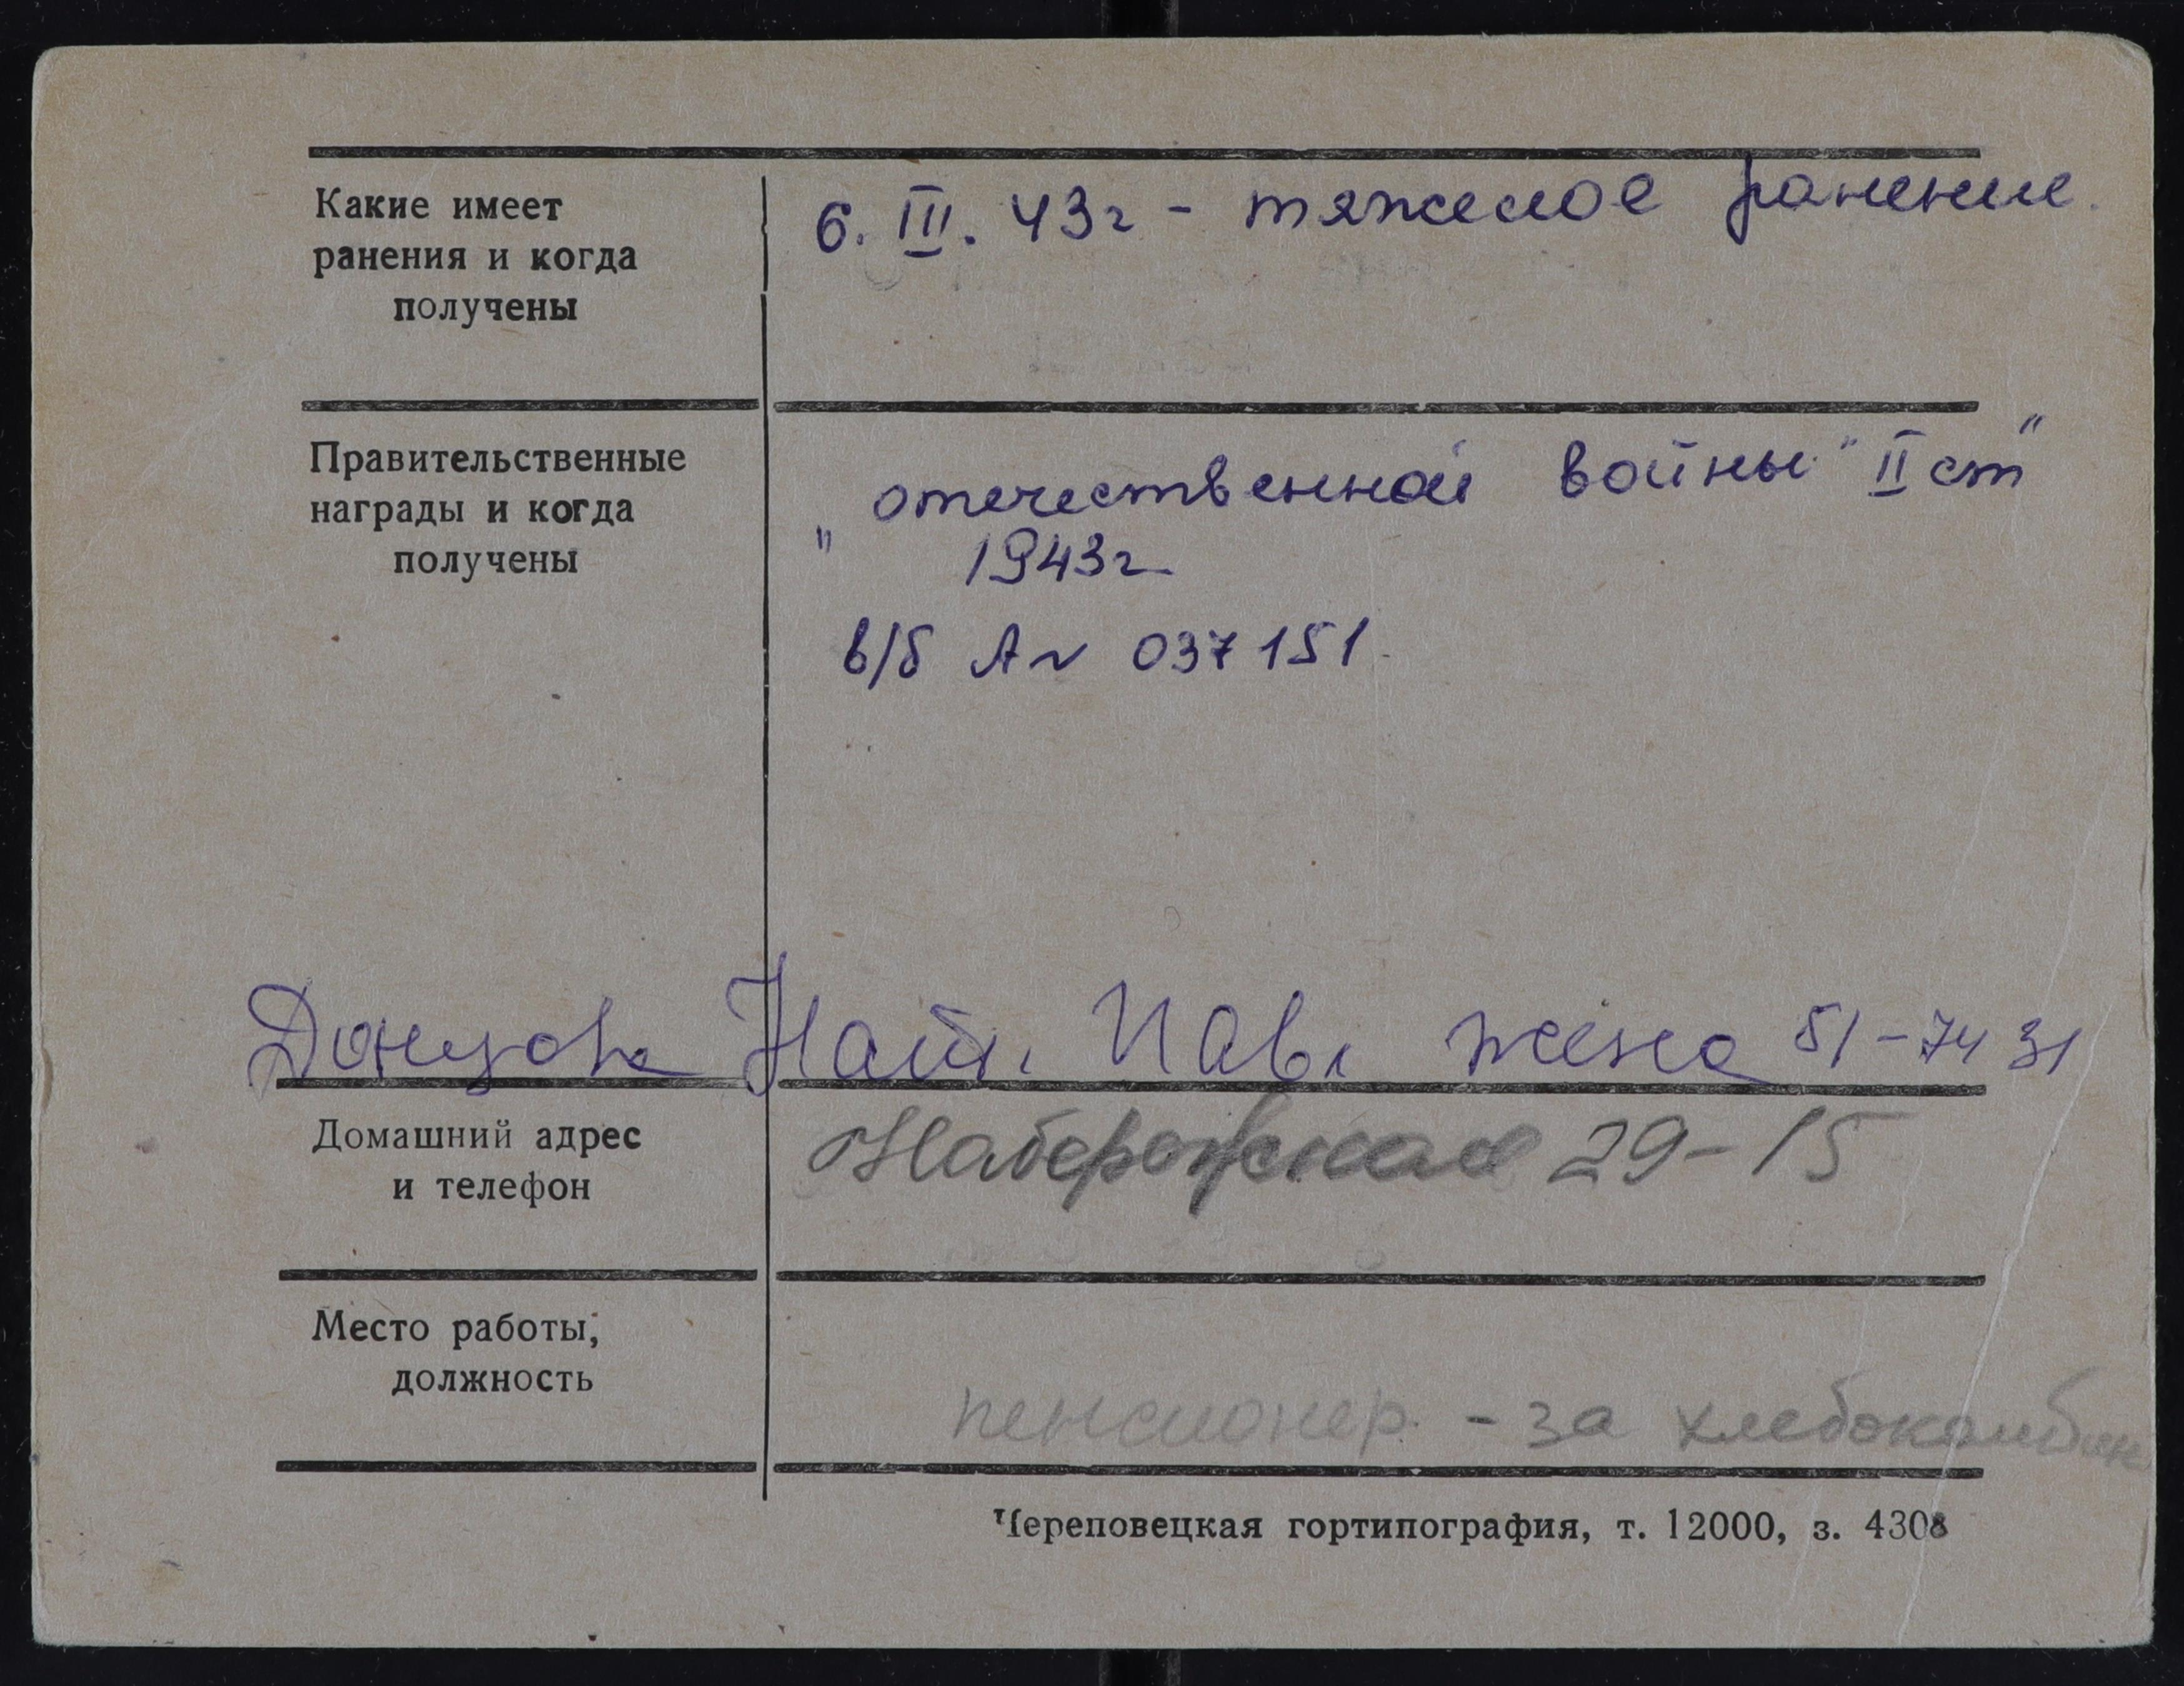 Какие имеет
ранения и когда
получены
6. III. 43г - тяжелое ранение.
Правительственные
награды и когда
получены
„отечественной войны" II ст"
1943г.
в/б А№ 037151.
Нат. Пав. жена 51-74 31
Домашний адрес
и телефон
Набережная 29-15
Место работы,
должность
пенсионер. - за хлебокомбин
Череповецкая гортипография, т. 12000, з. 4308